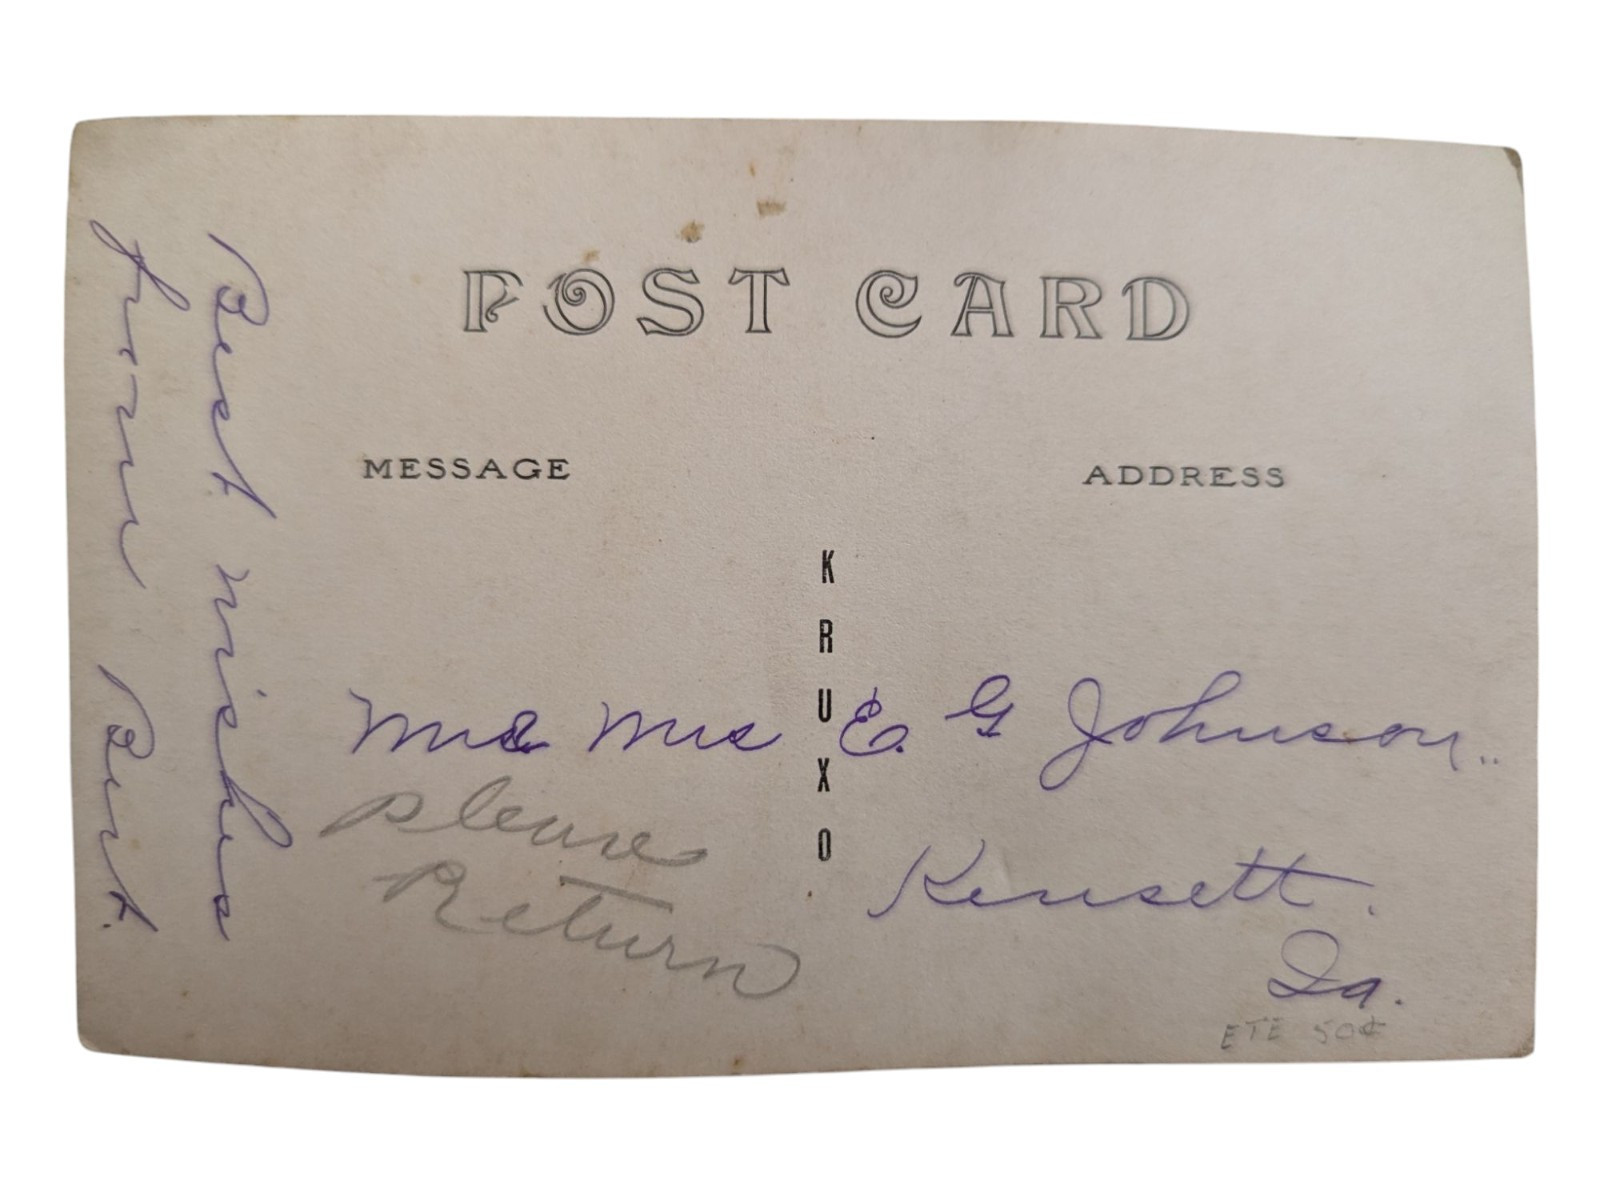 POST CARD
MESSAGE
ADDRESS
KRUXO
Best wishes
from Burt.
Mr & Mrs E. G Johnson..
Please
Return
Kensett.
Ia.
ETE 50¢